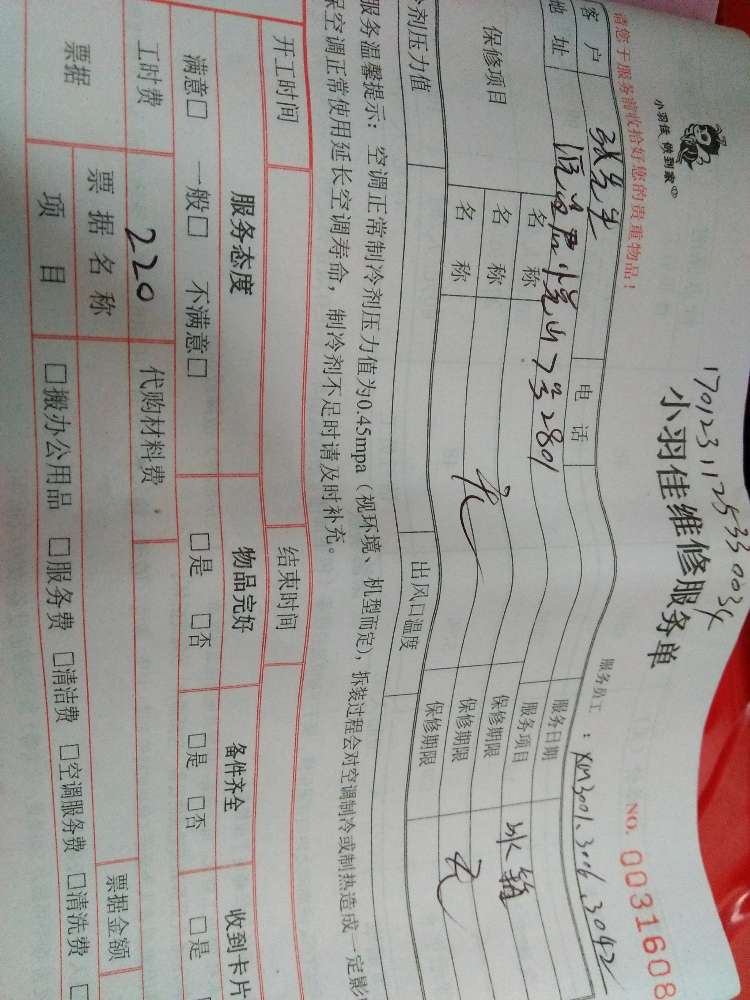 小羽佳 做到家
170123112535 0034
小羽佳维修服务单
NO. 0031608
请您于服务前收拾好您的贵重物品！
服务员工 : XM3001.3006.3042
客户 张先生 电话 服务日期
地址 7号2801 服务项目
保修项目 名称 保修期限
名称 无 保修期限 无
名称 保修期限
剂压力值 出风口温度
服务温馨提示：空调正常制冷剂压力值为0.45mpa（视环境、机型而定），拆装过程会对空调制冷或制热造成一定影
保空调正常使用延长空调寿命，制冷剂不足时请及时补充。
开工时间 结束时间
服务态度 物品完好 备件齐全 收到卡片
满意□ 一般□ 不满意□ □是 □否 □是 □否 □是
工时费 220 代购材料费
票据 票据名称 票据金额
项目 □搬办公用品 □服务费 □清洁费 □空调服务费 □清洗费